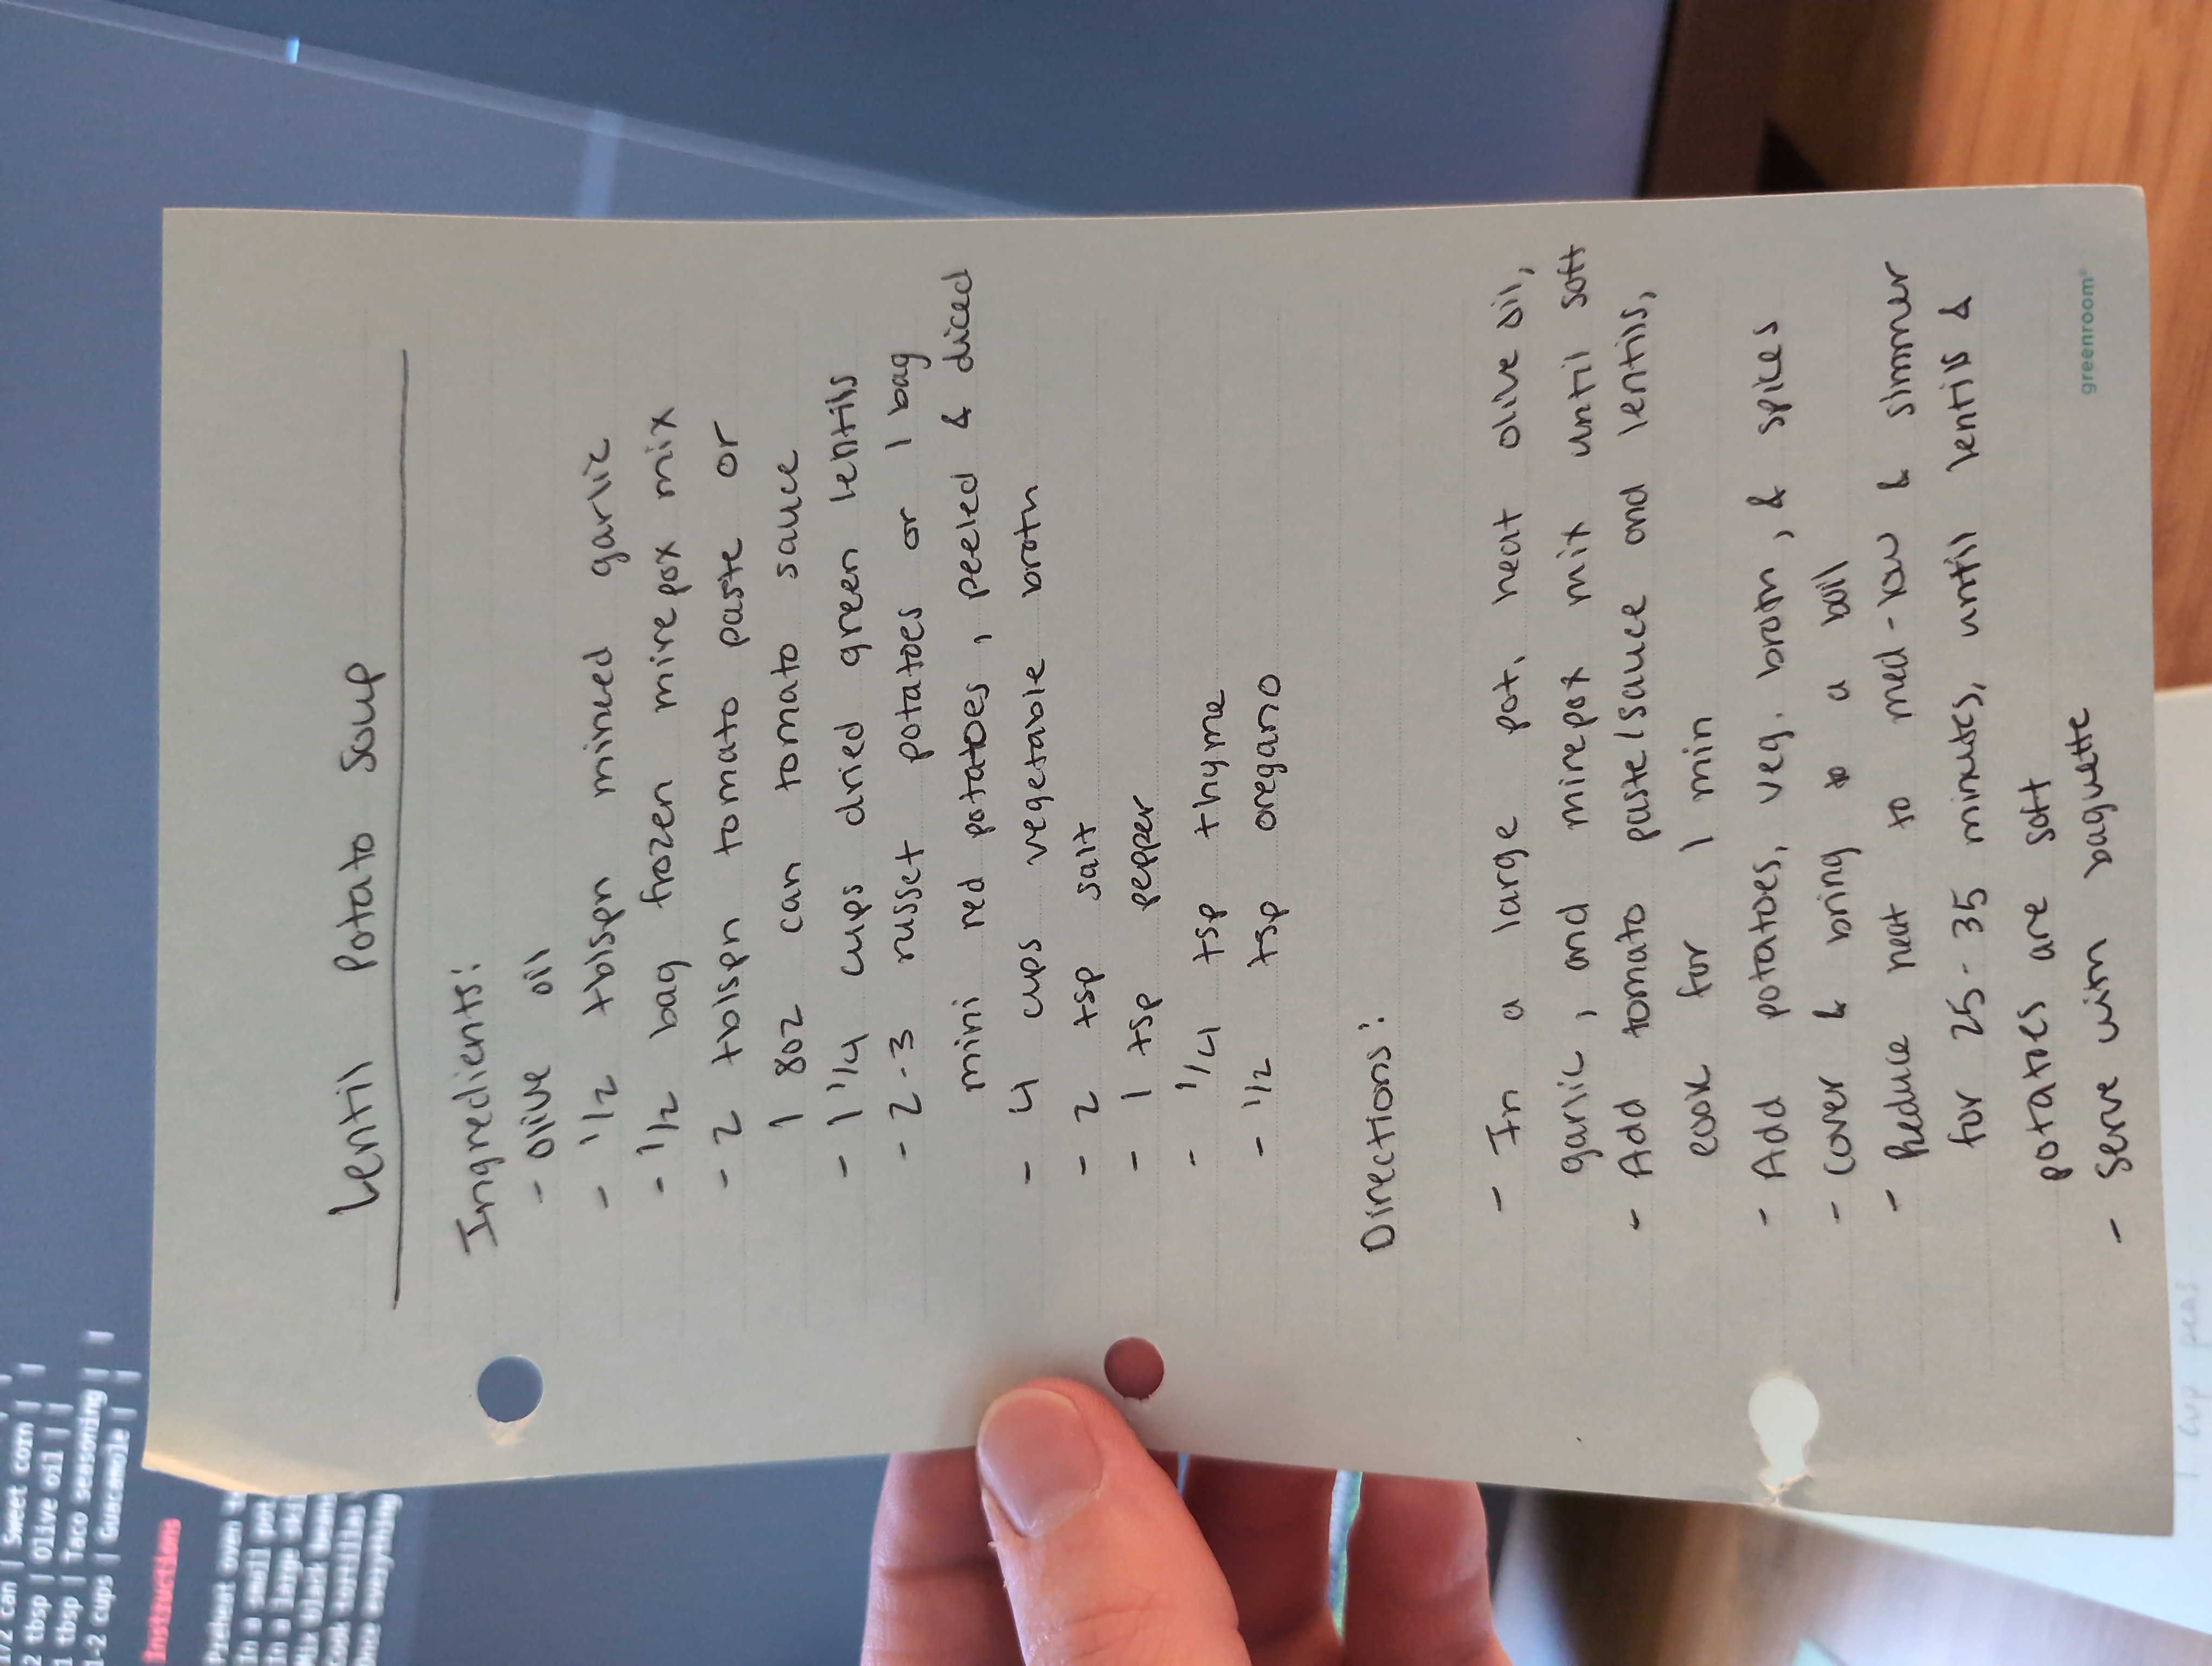 Lentil Potato Soup
Ingredients:
- olive oil
- 1/2 tblspn minced garlic
- 1/2 bag frozen mirepox mix
- 2 tblspn tomato paste or
1 8oz can tomato sauce
- 1 1/4 cups dried green lentils
- 2-3 russet potatoes or 1 bag
mini red potatoes, peeled & diced
- 4 cups vegetable broth
- 2 tsp salt
- 1 tsp pepper
- 1/4 tsp thyme
- 1/2 tsp oregano
Directions:
- In a large pot, heat olive oil,
garlic, and mirepox mix until soft
- Add tomato paste/sauce and lentils,
cook for 1 min
- Add potatoes, veg. broth, & spices
- Cover & bring to a boil
- Reduce heat to med-low & simmer
for 25-35 minutes, until lentils &
potatoes are soft
- Serve with baguette
greenroom®
1/2 can | Sweet corn |
2 tbsp | Olive oil |
1 tbsp | Taco seasoning |
1-2 cups | Guacamole |
Instructions
Preheat oven
In a small pot
In a large
Mix black
Cook tortillas
Once everything
1 cup peas